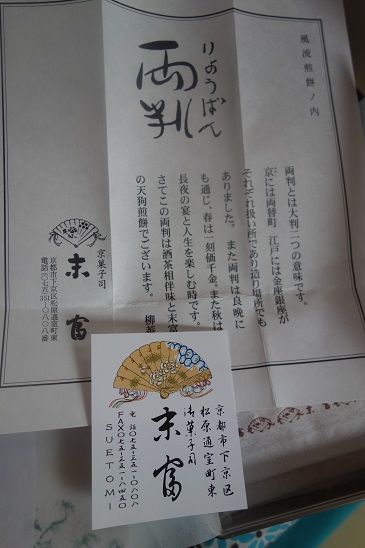 風流煎餅ノ内
りようばん
両判
両判とは大判二つの意味です。
京には両替町　江戸には金座銀座が
それぞれ扱い所であり造り場所でも
ありました。また両判は良晩に
も通じ、春は一刻価千金。また秋は
長夜の宴と人生を楽しむ時です。
さてこの両判は酒茶相伴味と末富
の天狗煎餅でございます。
京菓子司
末富
京都市下京区松原通室町東
電話〇七五-351-〇八〇八番
京都市下京区
松原通室町東
御菓子司
末富
電話〇七五-三五一-〇八〇八
FAX〇七五-三五一-八四五〇
SUETOMI